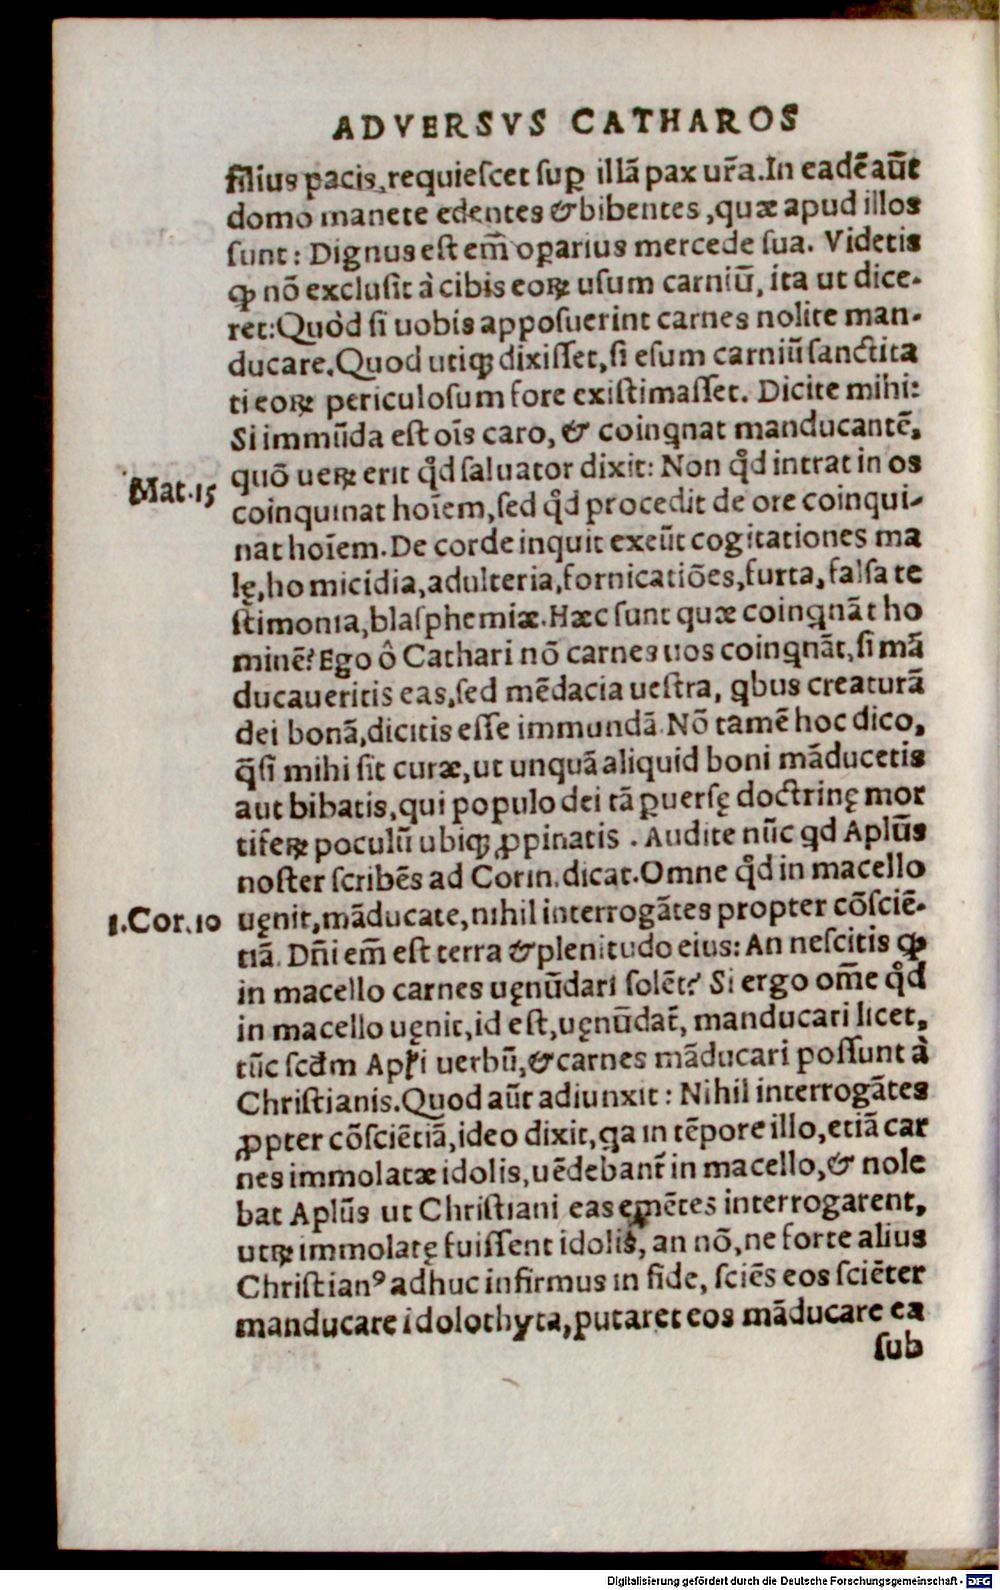 ADVERSVS CATHAROS
filius pacis, requieſcet ſuꝑ illã pax ur̃a. In eadẽ aũt
domo manete edentes & bibentes, quæ apud illos
ſunt: Dignus eſt em̃ oꝑarius mercede ſua. Videtis
ꝙ nõ excluſit à cibis eoꝝ uſum carniũ, ita ut dice-
ret: Quòd ſi uobis appoſuerint carnes nolite man-
ducare. Quod utiqꝫ dixiſſet, ſi eſum carniũ ſanctita
ti eoꝝ periculoſum fore exiſtimaſſet. Dicite mihi:
Si immũda eſt oĩs caro, & coinqnat manducantẽ,
quõ ueꝝ erit qd̓ ſaluator dixit: Non qd̓ intrat in os
Mat. 15
coinquinat hoĩem, ſed qd̓ procedit de ore coinqui-
nat hoĩem. De corde inquit exeũt cogitationes ma
lę, homicidia, adulteria, fornicatiões, furta, falſa te
ſtimonia, blaſphemiæ. Hæc ſunt quæ coinqnãt ho
minẽ? Ego ô Cathari nõ carnes uos coinqnãt, ſi mã
ducaueritis eas, ſed mẽdacia ueſtra, qbus creaturã
dei bonã, dicitis eſſe immundã. Nõ tamẽ hoc dico,
q̃ſi mihi ſit curæ, ut unquã aliquid boni mãducetis
aut bibatis, qui populo dei tã ꝑuerſę doctrinę mor
tiferꝝ poculũ ubiqꝫ ꝓpinatis. Audite nũc qd Aplũs
noſter ſcribẽs ad Corin. dicat. Omne qd̓ in macello
1. Cor. 10
uęnit, mãducate, nihil interrogãtes propter cõſciẽ-
tiã. Dñi em̃ eſt terra & plenitudo eius: An neſcitis ꝙ
in macello carnes uęnũdari ſolẽt? Si ergo om̃e qd̓
in macello uęnit, id eſt, uęnũdat̃, manducari licet,
tũc ſcd̃m Apl̃i uerbũ, & carnes mãducari poſſunt à
Chriſtianis. Quod aũt adiunxit: Nihil interrogãtes
ꝓpter cõſciẽtiã, ideo dixit, qa in tẽpore illo, etiã car
nes immolatæ idolis, uẽdebant̃ in macello, & nole
bat Aplũs ut Chriſtiani eas emẽtes interrogarent,
utꝝ immolatę fuiſſent idolis, an nõ, ne forte alius
Chriſtianꝰ adhuc infirmus in fide, ſciẽs eos ſciẽter
manducare idolothyta, putaret eos mãducare ea
ſub
Digitalisierung gefördert durch die Deutsche Forschungsgemeinschaft - DFG